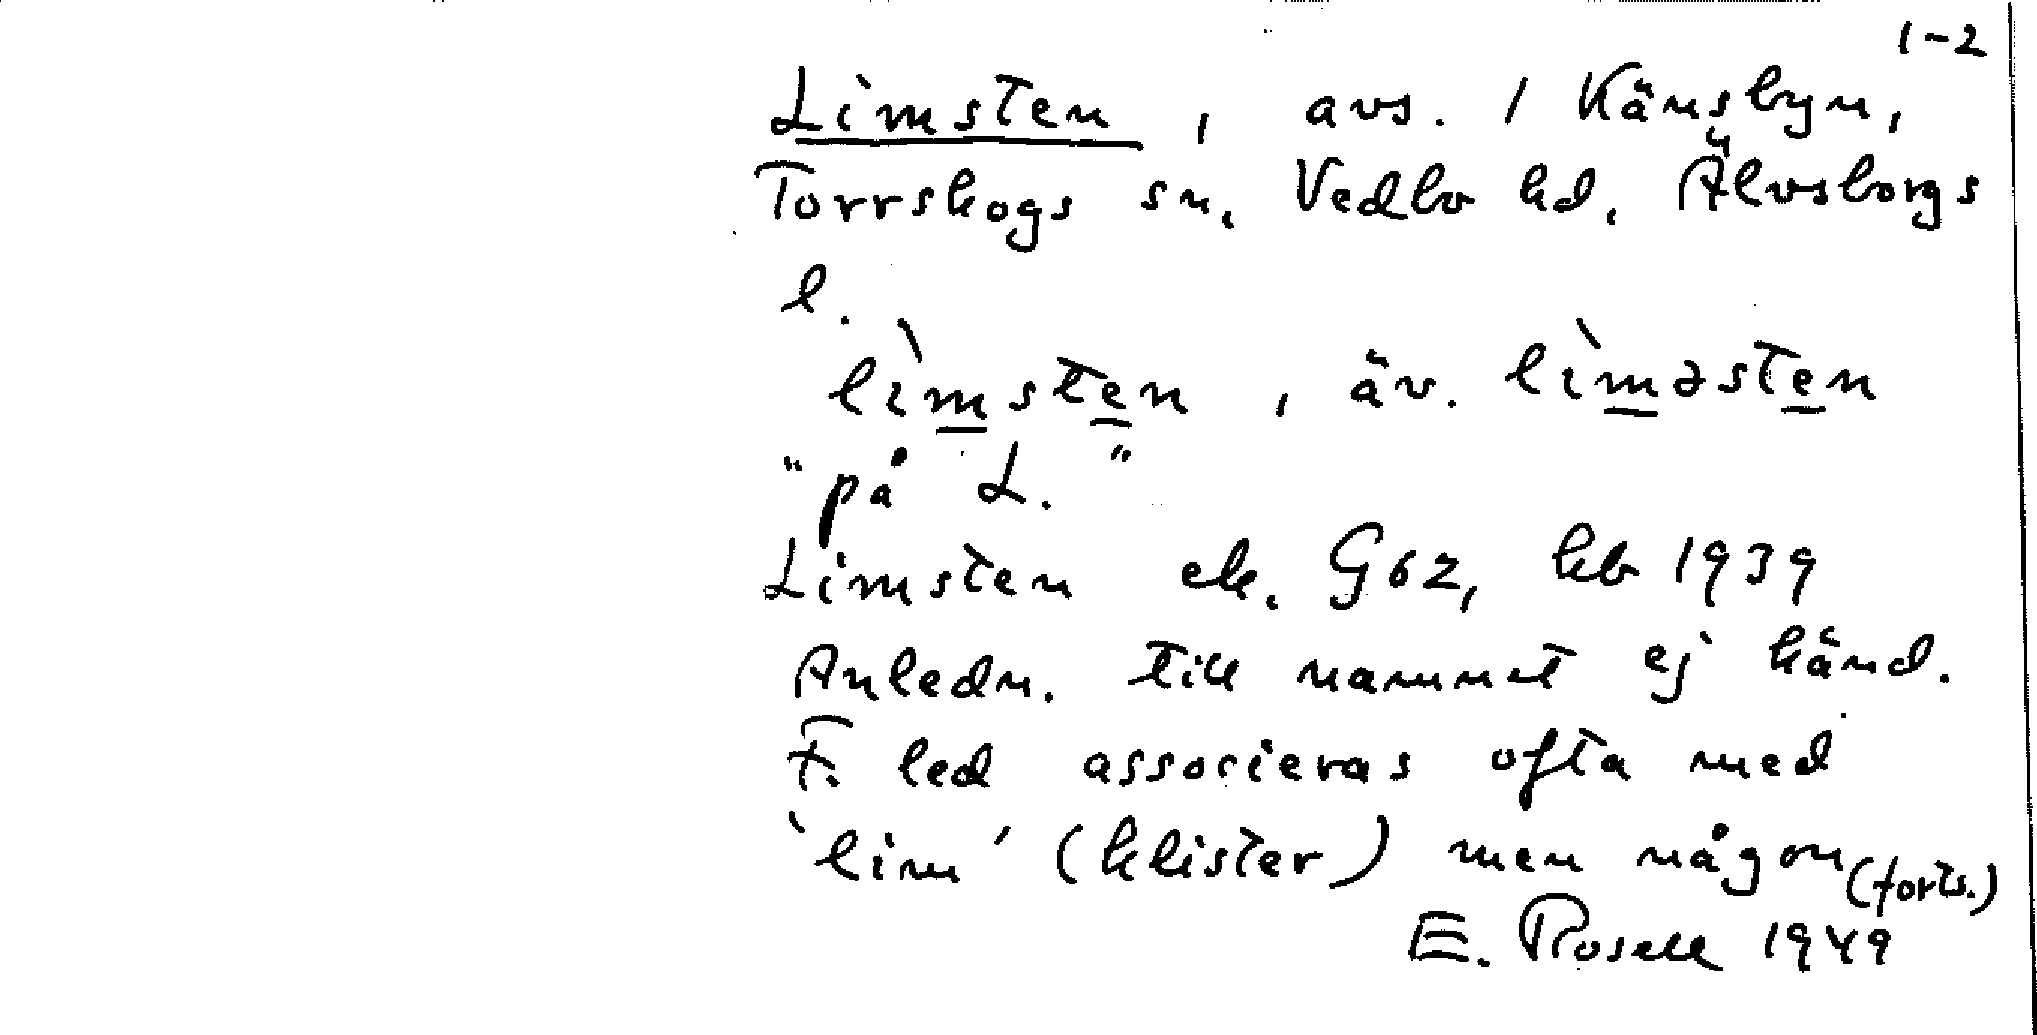 1-2
Limsten, avs. / Känsbyn,
Torrskogs sn, Vedbo hd, Älvsborgs
l.
lìmsten, äv. lìməsten
"på L."
Limsten ek. G62, kb 1939
Anledn. till namnet ej känd.
F. led associeras ofta med
'lim' (klister) men någon (forts.)
E. Rosell 1949